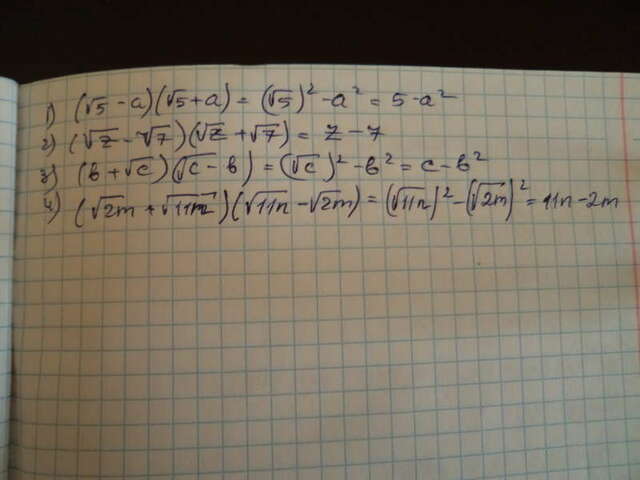 1) (√5 - a)(√5 + a) = (√5)² - a² = 5 - a²
2) (√z - √7)(√z + √7) = z - 7
3) (b + √c)(√c - b) = (√c)² - b² = c - b²
4) (√2m + √11n)(√11n - √2m) = (√11n)² - (√2m)² = 11n - 2m